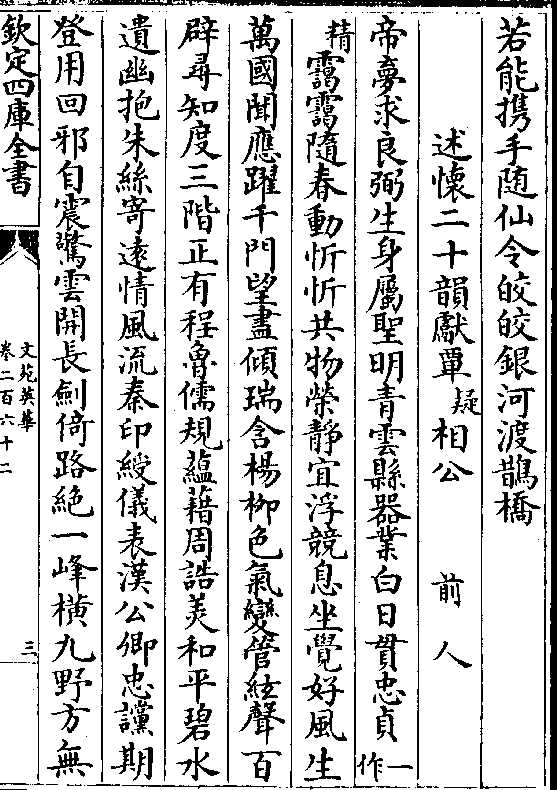 若能携手随仙令皎皎銀河渡鵲橋
述懷二十韻獻覃疑相公 前人
帝夢求良弼生身屬聖明青雲縣器業白日貫忠貞一作
精靄靄隨春動忻忻共物榮靜宜浮競息坐覺好風生
萬國聞應躍千門望盡傾瑞含楊柳色氣變管絃聲百
辟尋知度三階正有程魯儒規蘊藉周誥美和平碧水
遺幽抱朱絲寄遠情風流秦印綬儀表漢公卿忠讜期
登用回邪自震驚雲開長劍倚路絶一峰橫九野方無
欽定四庫全書
文苑英華
卷二百六十二
三